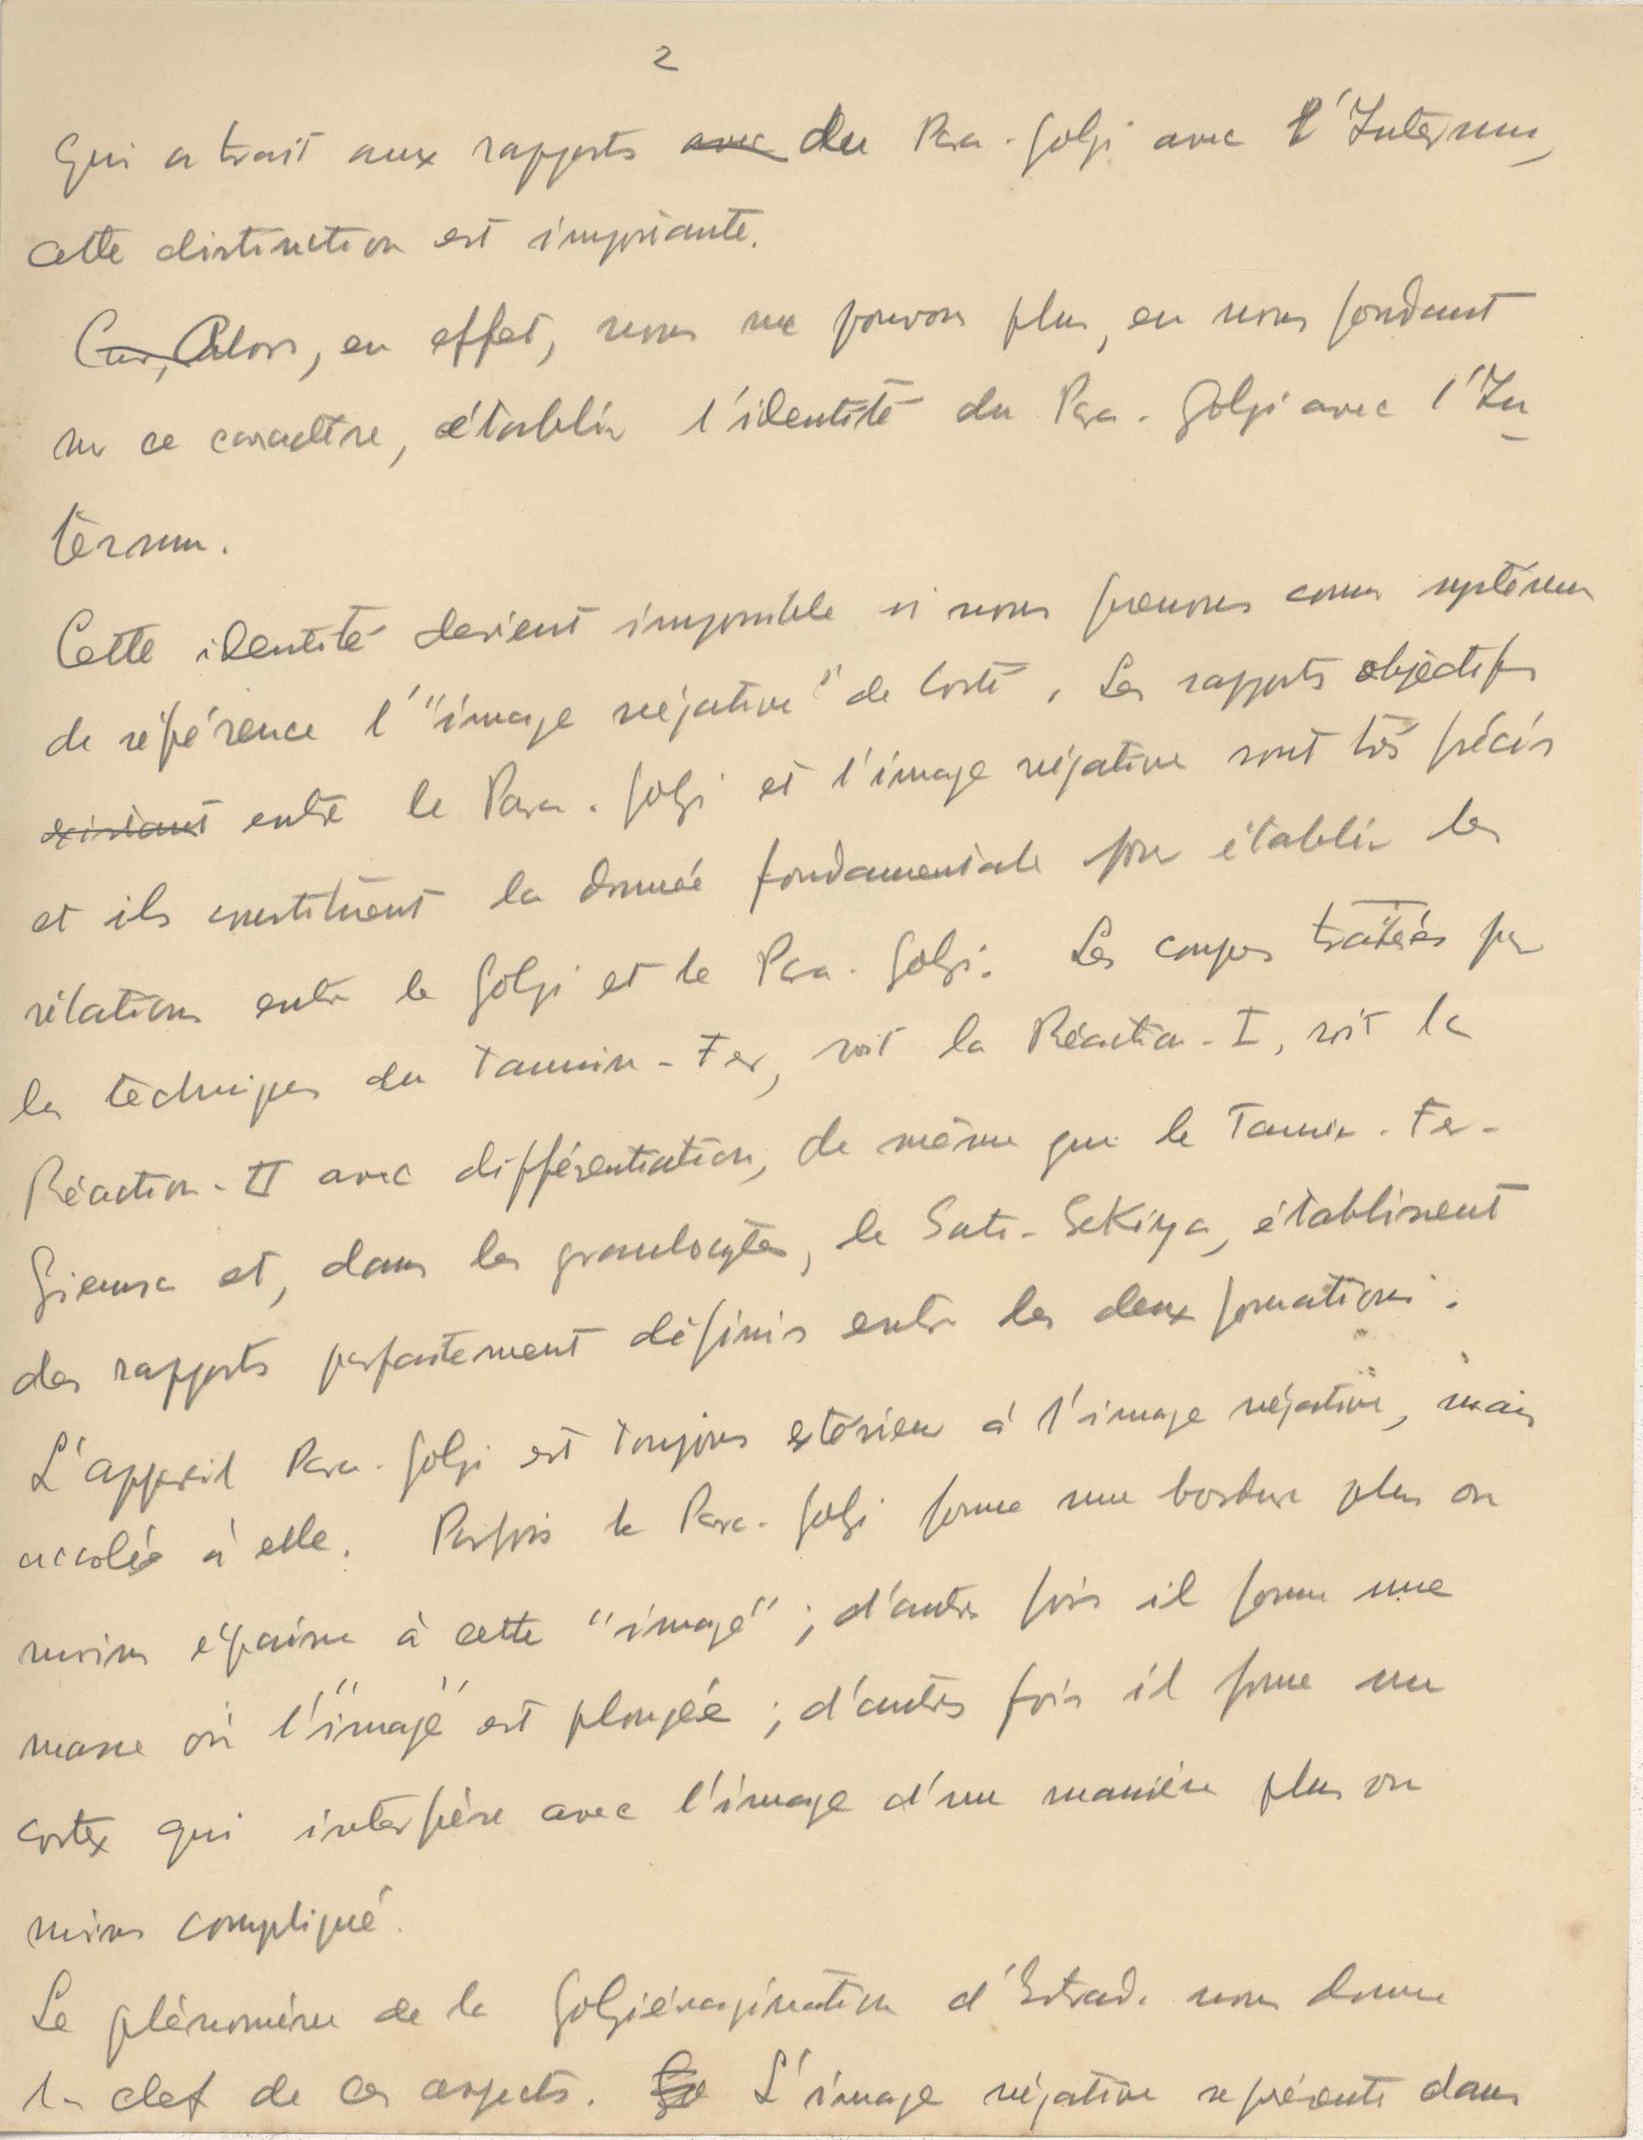 2
qui a trait aux rapports avec du Para-Golgi avec l'Internum,
cette distinction est importante.
Car, Alors, en effet, nous ne pouvons plus, en nous fondant
sur ce caractère, établir l'identité du Para-Golgi avec l'In-
ternum.
Cette identité devient impossible si nous prenons comme système
de référence l'"image négative" de Corti. Les rapports objectifs
existant entre le Para-Golgi et l'image négative sont très précis
et ils constituent la donnée fondamentale pour établir les
rélations entre le Golgi et le Para-Golgi. Les coupes traitées par
les techniques du Tannin-Fer, soit la Réaction-I, soit la
Réaction-II avec différentiation, de même que le Tannin-Fer-
Giemsa et, dans les granulocytes, le Sato-Sekiya, établissent
des rapports parfaitement définis entre les deux formations.
L'appareil Para-Golgi est toujours extérieur à l'image négative, mais
accolée à elle. Parfois le Para-Golgi forme une bordure plus ou
moins épaisse à cette "image"; d'autres fois il forme une
masse où l'"image" est plongée; d'autres fois il forme un
cortex qui interfère avec l'image d'une manière plus ou
moins compliqué.
Le phénomène de la Golgiévagination d' nous donne
la clef de ces aspects. L'image négative représente dans